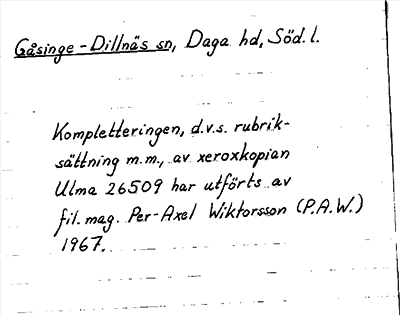 Gåsinge-Dillnäs sn, Daga hd, Söd. l.
Kompletteringen, d.v.s. rubrik-
sättning m.m., av xeroxkopian
Ulma 26509 har utförts av
fil. mag. Per-Axel Wiktorsson (P.A.W.)
1967.